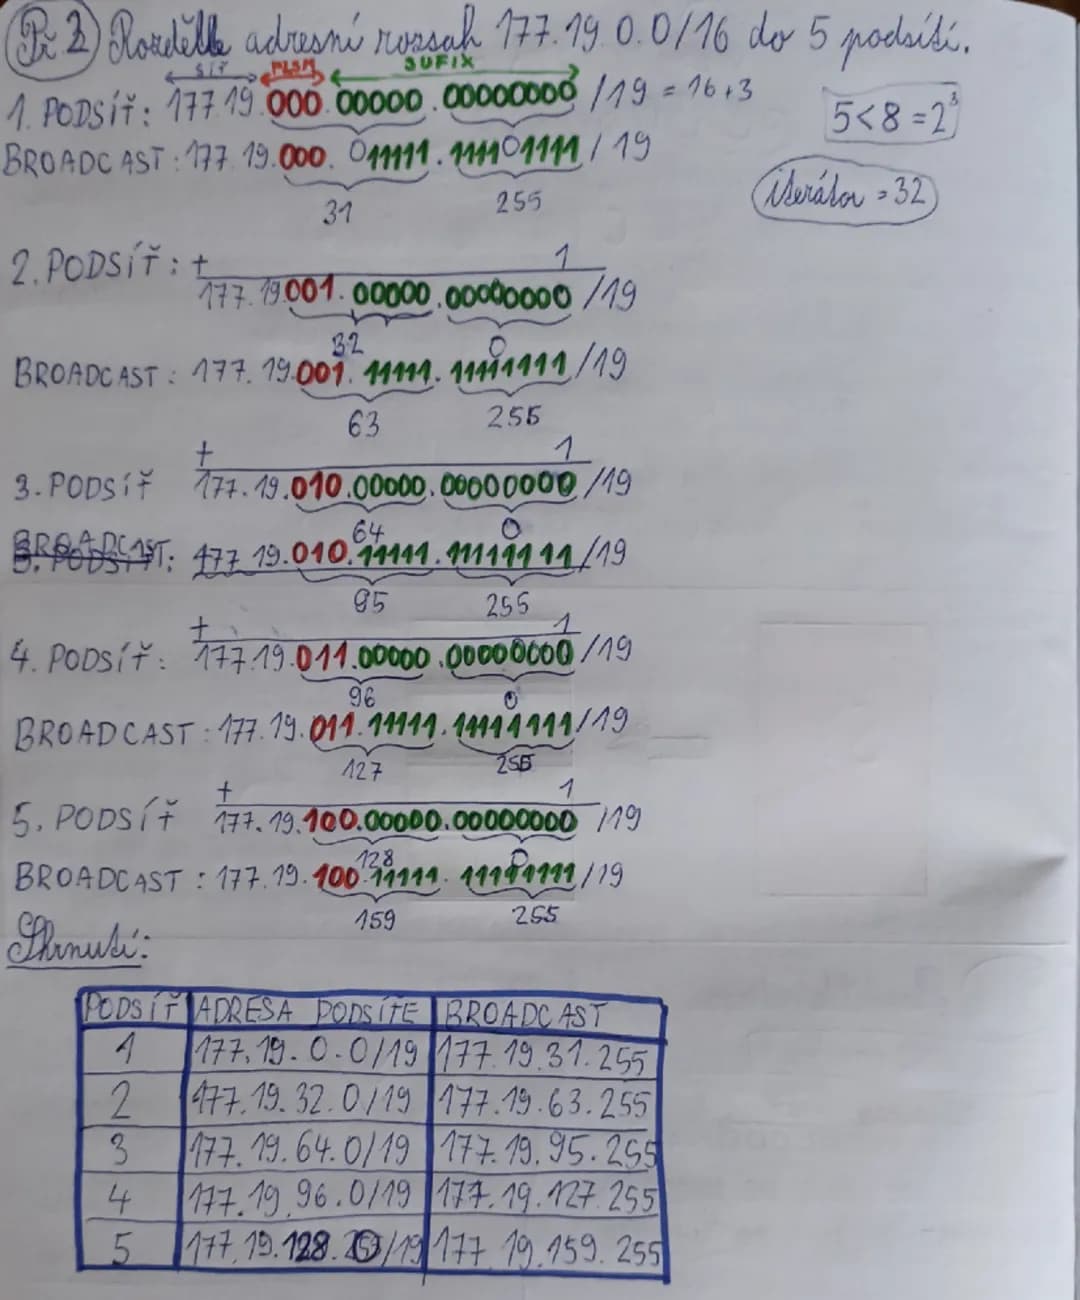 Př 2 Rozdělte adresní rozsah 177.19.0.0/16 do 5 podsítí.
SÍŤ PLSM SUFIX
1. PODSÍŤ: 177.19.000.00000.00000000/19 = 16+3
5<8=2³
BROADCAST: 177.19.000.011111.111101111/19
iterátor = 32
31 255
2. PODSÍŤ: + 1
177.19.001.00000.00000000/19
32 0
BROADCAST: 177.19.001.11111.11111111/19
63 255
+ 1
3. PODSÍŤ 177.19.010.00000.00000000/19
64 0
BROADCAST: 177.19.010.11111.11111111/19
95 255
+ 1
4. PODSÍŤ: 177.19.011.00000.00000000/19
96 0
BROADCAST: 177.19.011.11111.11111111/19
127 255
+ 1
5. PODSÍŤ 177.19.100.00000.00000000/19
128 0
BROADCAST: 177.19.100.11111.11111111/19
159 255
Shrnutí:
PODSÍŤ ADRESA PODSÍTE BROADCAST
1 177.19.0.0/19 177.19.31.255
2 177.19.32.0/19 177.19.63.255
3 177.19.64.0/19 177.19.95.255
4 177.19.96.0/19 177.19.127.255
5 177.19.128.0/19 177.19.159.255